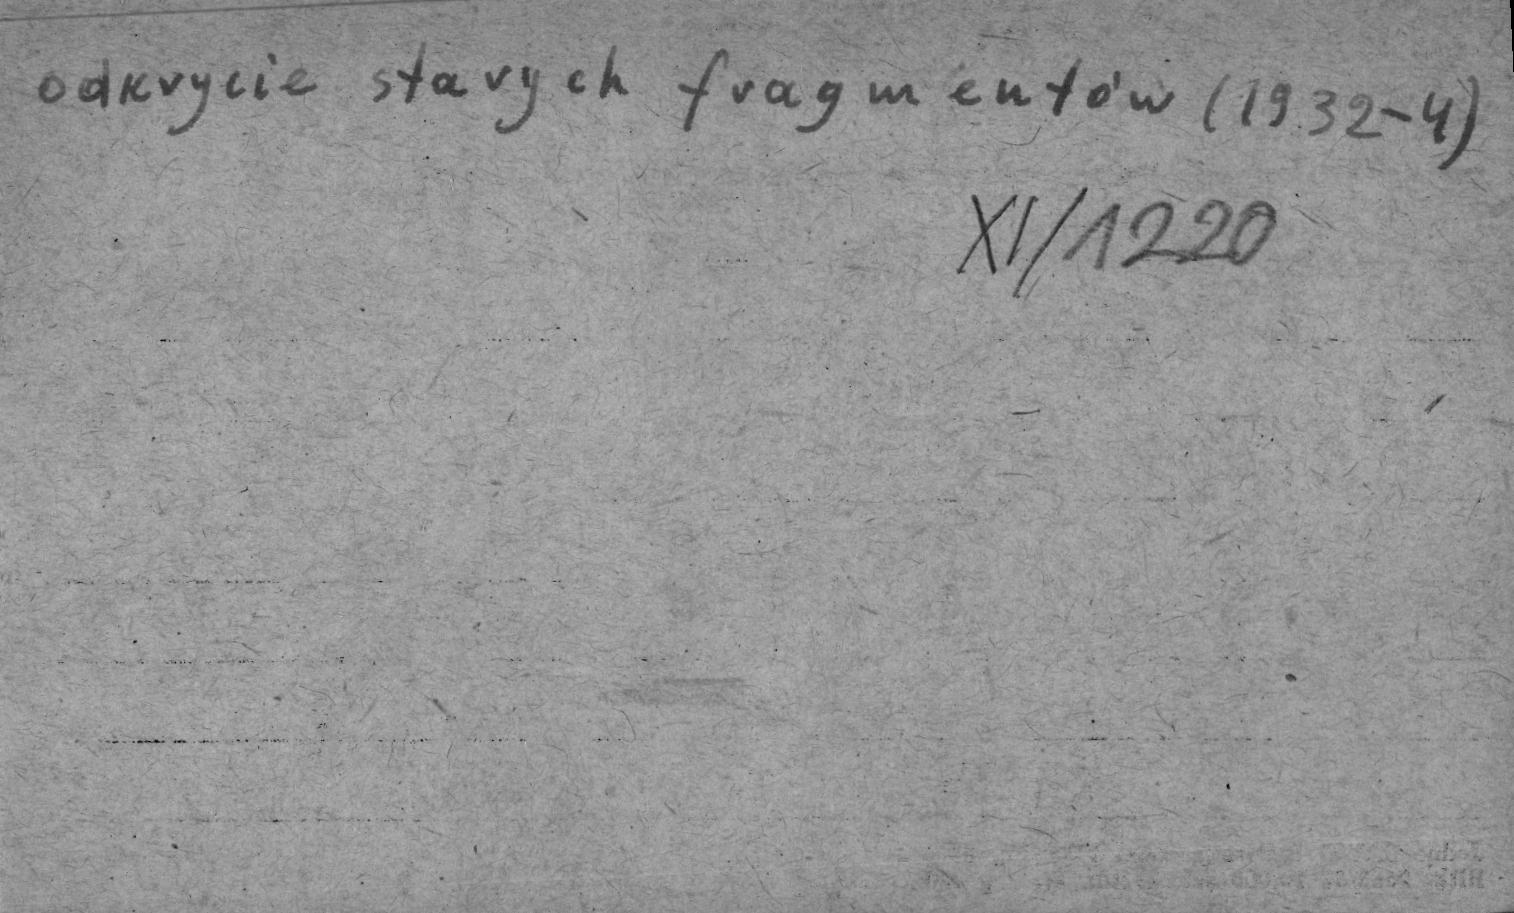 odkrycie starych fragmentów (1932-4)
XI/1220